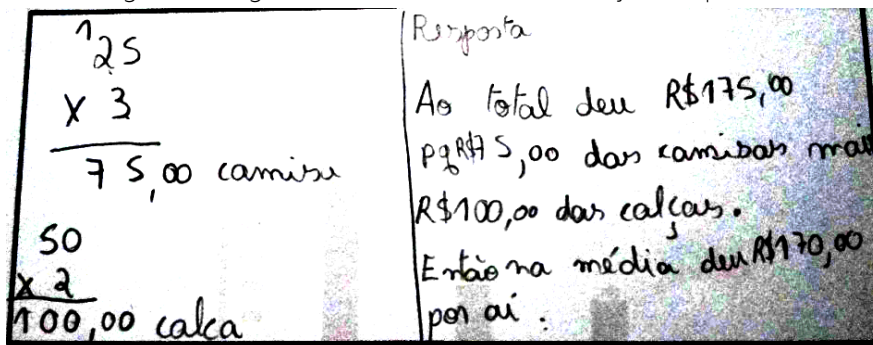 ¹25
x 3
75,00 camisa
50
x 2
100,00 calca
Resposta
Ao total deu R$175,00
pq R$75,00 das camisas mais
R$100,00 das calças.
Então na média deu R$170,00
por ai.